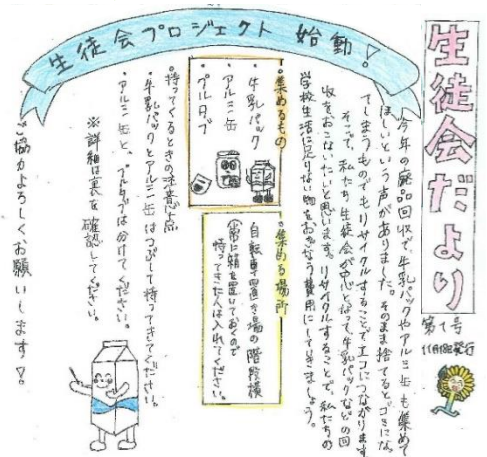 生徒会だより
第1号
11月18日発行
生徒会プロジェクト 始動!
今年の廃品回収で、牛乳パックやアルミ缶も集めて
ほしいという声がありました。そのまま捨てるとゴミになっ
てしまうものでもリサイクルすることでエコにつながります。
そこで、私たち生徒会が中心となって、牛乳パックなどの回
収をおこないたいと思います。リサイクルすることで、私たちの
学校生活に足りない物をおぎなう費用にしていきましょう。
◦集めるもの
・牛乳パック
・アルミ缶
・プルタブ
◦集める場所
自転車置き場の階段横
(常に箱を置いておくので
持ってきた人は入れてください。
◦持ってくるときの注意点
・牛乳パックとアルミ缶はつぶして持ってきてください。
・アルミ缶と、プルタブは分けてください。
※詳細は裏を確認してください。
ご協力よろしくお願いします!